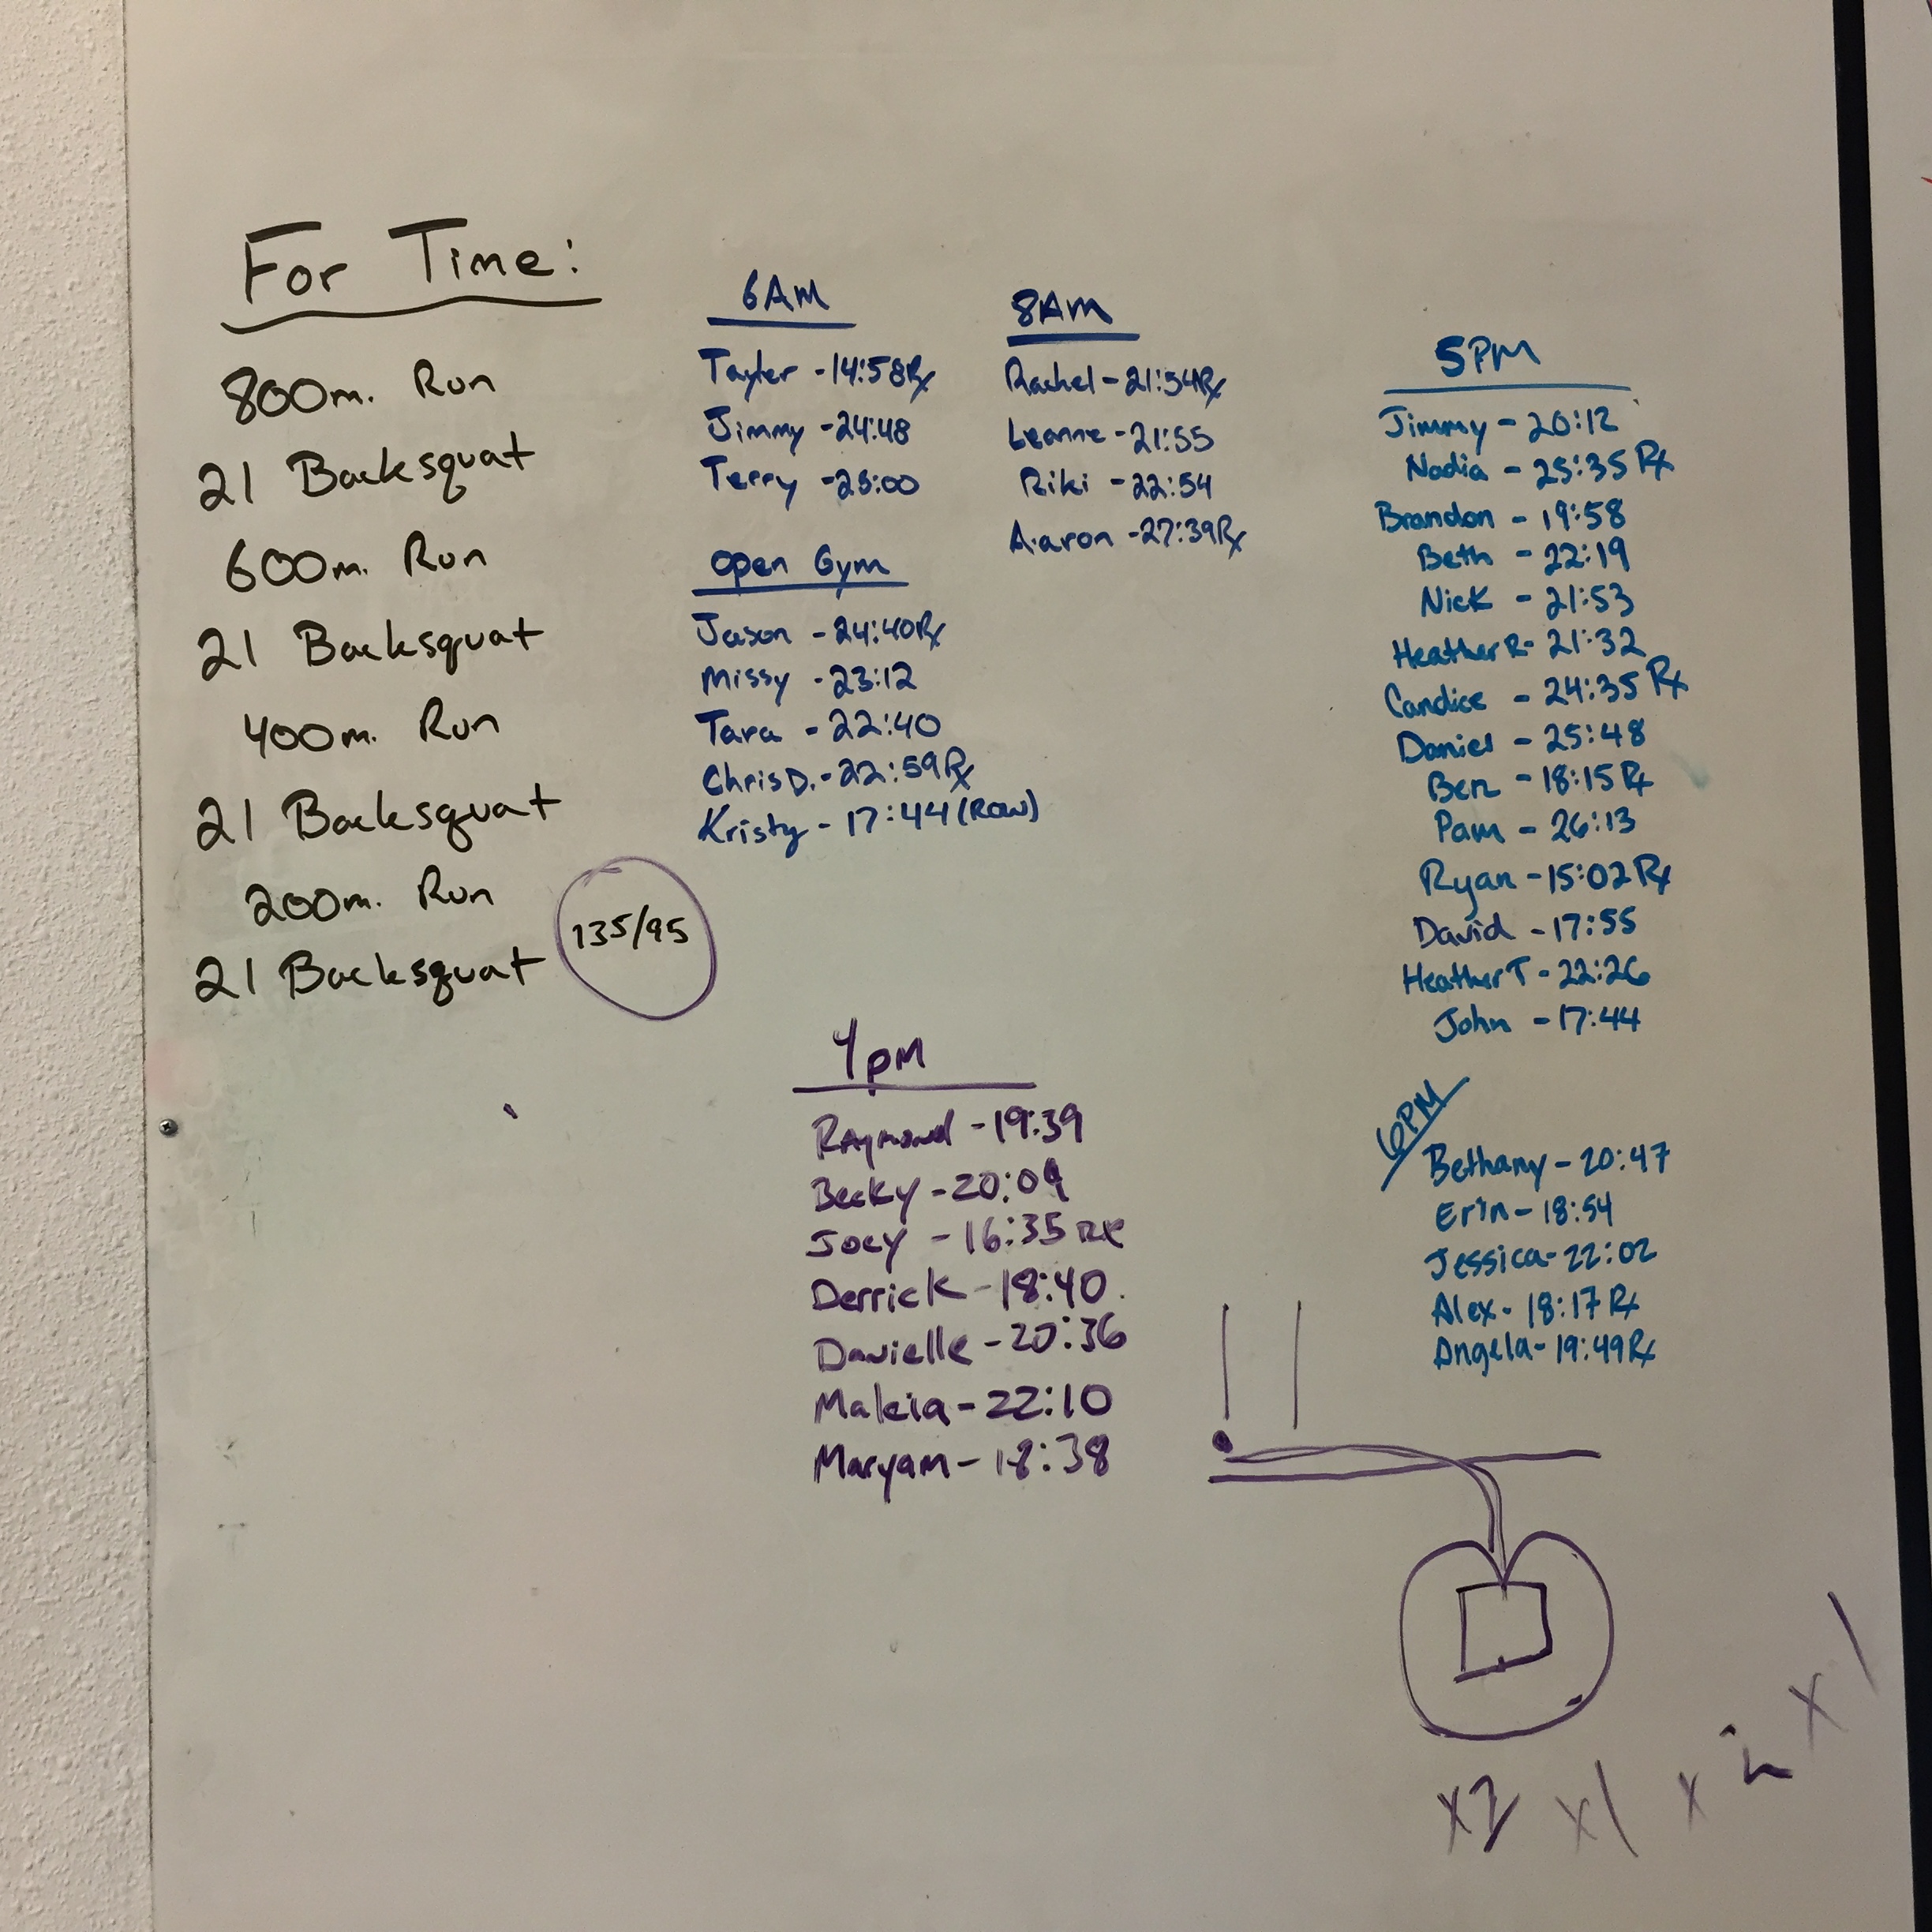 For Time:
800m. Run
21 Backsquat
600m. Run
21 Backsquat
400m. Run
21 Backsquat
200m. Run
21 Backsquat
135/95
6AM
Tayler - 14:58 Rx
Jimmy - 24:48
Terry - 25:00
Open Gym
Jason - 24:40 Rx
Missy - 23:12
Tara - 22:40
Chris D. - 22:59 Rx
Kristy - 17:44 (Row)
8AM
Rachel - 21:54 Rx
Leanne - 21:55
Riki - 22:54
Aaron - 27:39 Rx
4pm
Raymond - 19:39
Becky - 20:09
Joey - 16:35 Rx
Derrick - 18:40
Danielle - 20:36
Makia - 22:10
Maryam - 18:38
5PM
Jimmy - 20:12
Nadia - 25:35 Rx
Brandon - 19:58
Beth - 22:19
Nick - 21:53
Heather R - 21:32
Candice - 24:35 Rx
Daniel - 25:48
Ben - 18:15 Rx
Pam - 26:13
Ryan - 15:02 Rx
David - 17:55
Heather T - 22:26
John - 17:44
6PM
Bethany - 20:47
Erin - 18:54
Jessica - 22:02
Alex - 18:17 Rx
Angela - 19:49 Rx
x2 x1 x2 x1